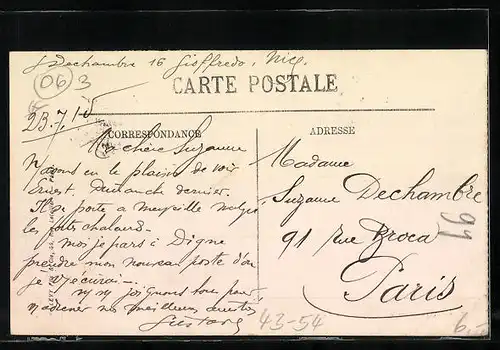 J Dechambre 16 Gioffredo. Nice.
(06) 3
CARTE POSTALE
23.7.10
CORRESPONDANCE
Ma chère Suzanne
N'ayant eu le plaisir de voir
Ernest Dimanche dernier.
Il se porte a merveille malgré
les forts chaleurs.
Moi je pars à Digne
prendre mon nouveau poste d'ou
je t'écrirai.
joignent tous pour
nos meilleures
Gustave
ADRESSE
Madame
Suzanne Dechambre
91 rue Broca
Paris
99
43-54